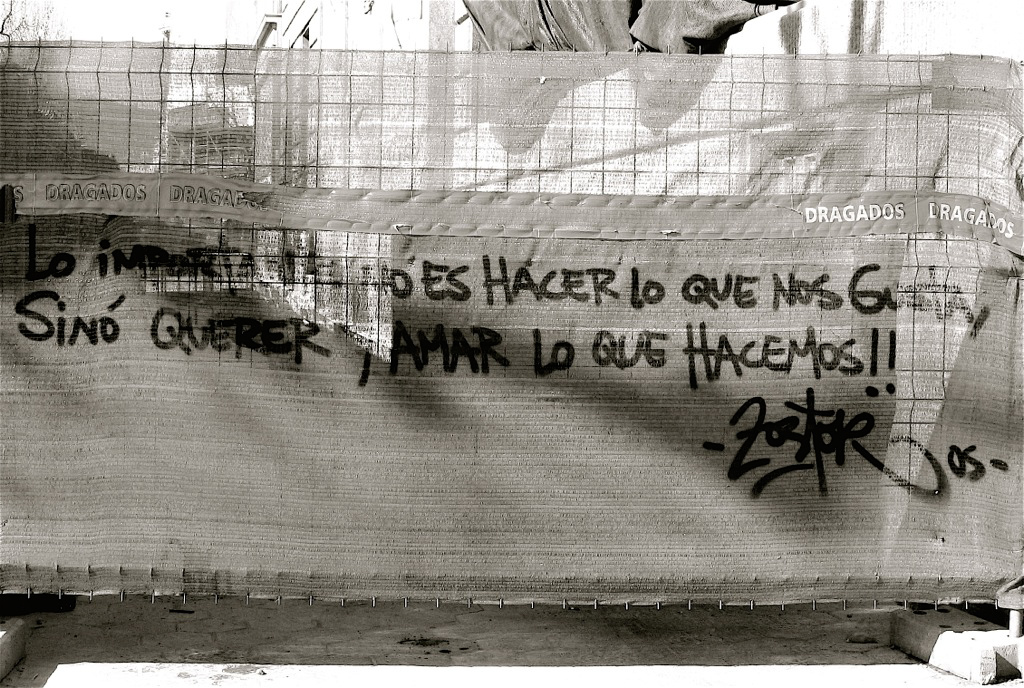 DRAGADOS DRAGADOS DRAGADOS DRAGADOS
Lo importante no ES HACER lo QUE NOS GUSTA,
Sinó QUERER y AMAR Lo QUE HACEMOS!!
- Zoster Dos -